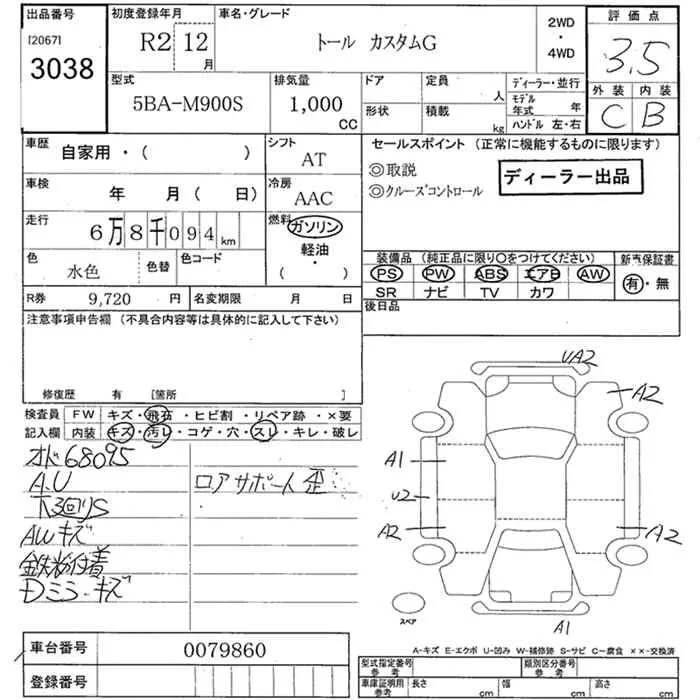 出品番号
[2067]
3038
初度登録年月
R2 12月
車名・グレード
トール カスタムG
2WD
・
4WD
評価点
3.5
外装 内装
C B
型式
5BA-M900S
排気量
1,000
CC
ドア
形状
定員
人
積載
kg
ディーラー・並行
モデル
年式 年
ハンドル 左・右
車歴
自家用・( )
シフト
AT
車検
年 月( 日)
冷房
AAC
走行
6万8千094km
燃料
ガソリン
軽油・
( )
色
水色
色替
色コード
R券 9,720 円
名変期限 月 日
セールスポイント (正常に機能するものに限ります)
◎取説
◎クルーズコントロール
ディーラー出品
装備品 (純正品に限り○をつけてください)
PS PW ABS エアB AW
SR ナビ TV カワ
新車保証書
有・無
後日品
注意事項申告欄 (不具合内容等は具体的に記入して下さい)
修復歴 有 [箇所 ]
検査員
記入欄
FW キズ・飛石・ヒビ割・リペア跡・×要
内装 キズ・汚レ・コゲ・穴・スレ・キレ・破レ
オド68095
A.U
下廻りS
AWキズ
鉄粉付着
Dミラーキズ
ロアサポート歪
UA2
A2
A1
U2
A2
A2
A1
スペア
A-キズ E-エクボ U-凹み W-補修跡 S-サビ C-腐食 ××-交換済
車台番号 0079860
登録番号
型式指定番号
参考
類別区分番号
参考
車庫証明用
参考
長さ cm
幅 cm
高さ cm